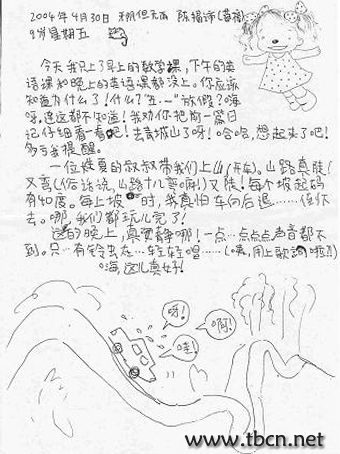 2004年4月30日 阴但无雨 陈福诗(蓄福)
9岁星期五
今天我只上了早上的数学课,下午的英
语课和晚上的英语课都没上。你应该
知道为什么了!什么?"五一"放假?嗨
呀,连这都不知道!我劝你把前一篇日
记仔细看一看吧!去青城山了呀!哈哈,想起来了吧!
多亏我提醒。
一位姓夏的叔叔带我们上山(开车)。山路真陡!
又弯!(俗话说,山路十八弯嘛!)又陡!每个坡起码
有40度。每上坡时,我真怕车向后退……往你
去。哪,我们都玩儿完了!
这的晚上,真安静哪!一点…点点点声音都不
到。只…有铃虫在…轻轻唱……(咦,用上歌词啦!!)
嗨,这儿真好!
呀!
啊!
哇!
www.tbcn.net